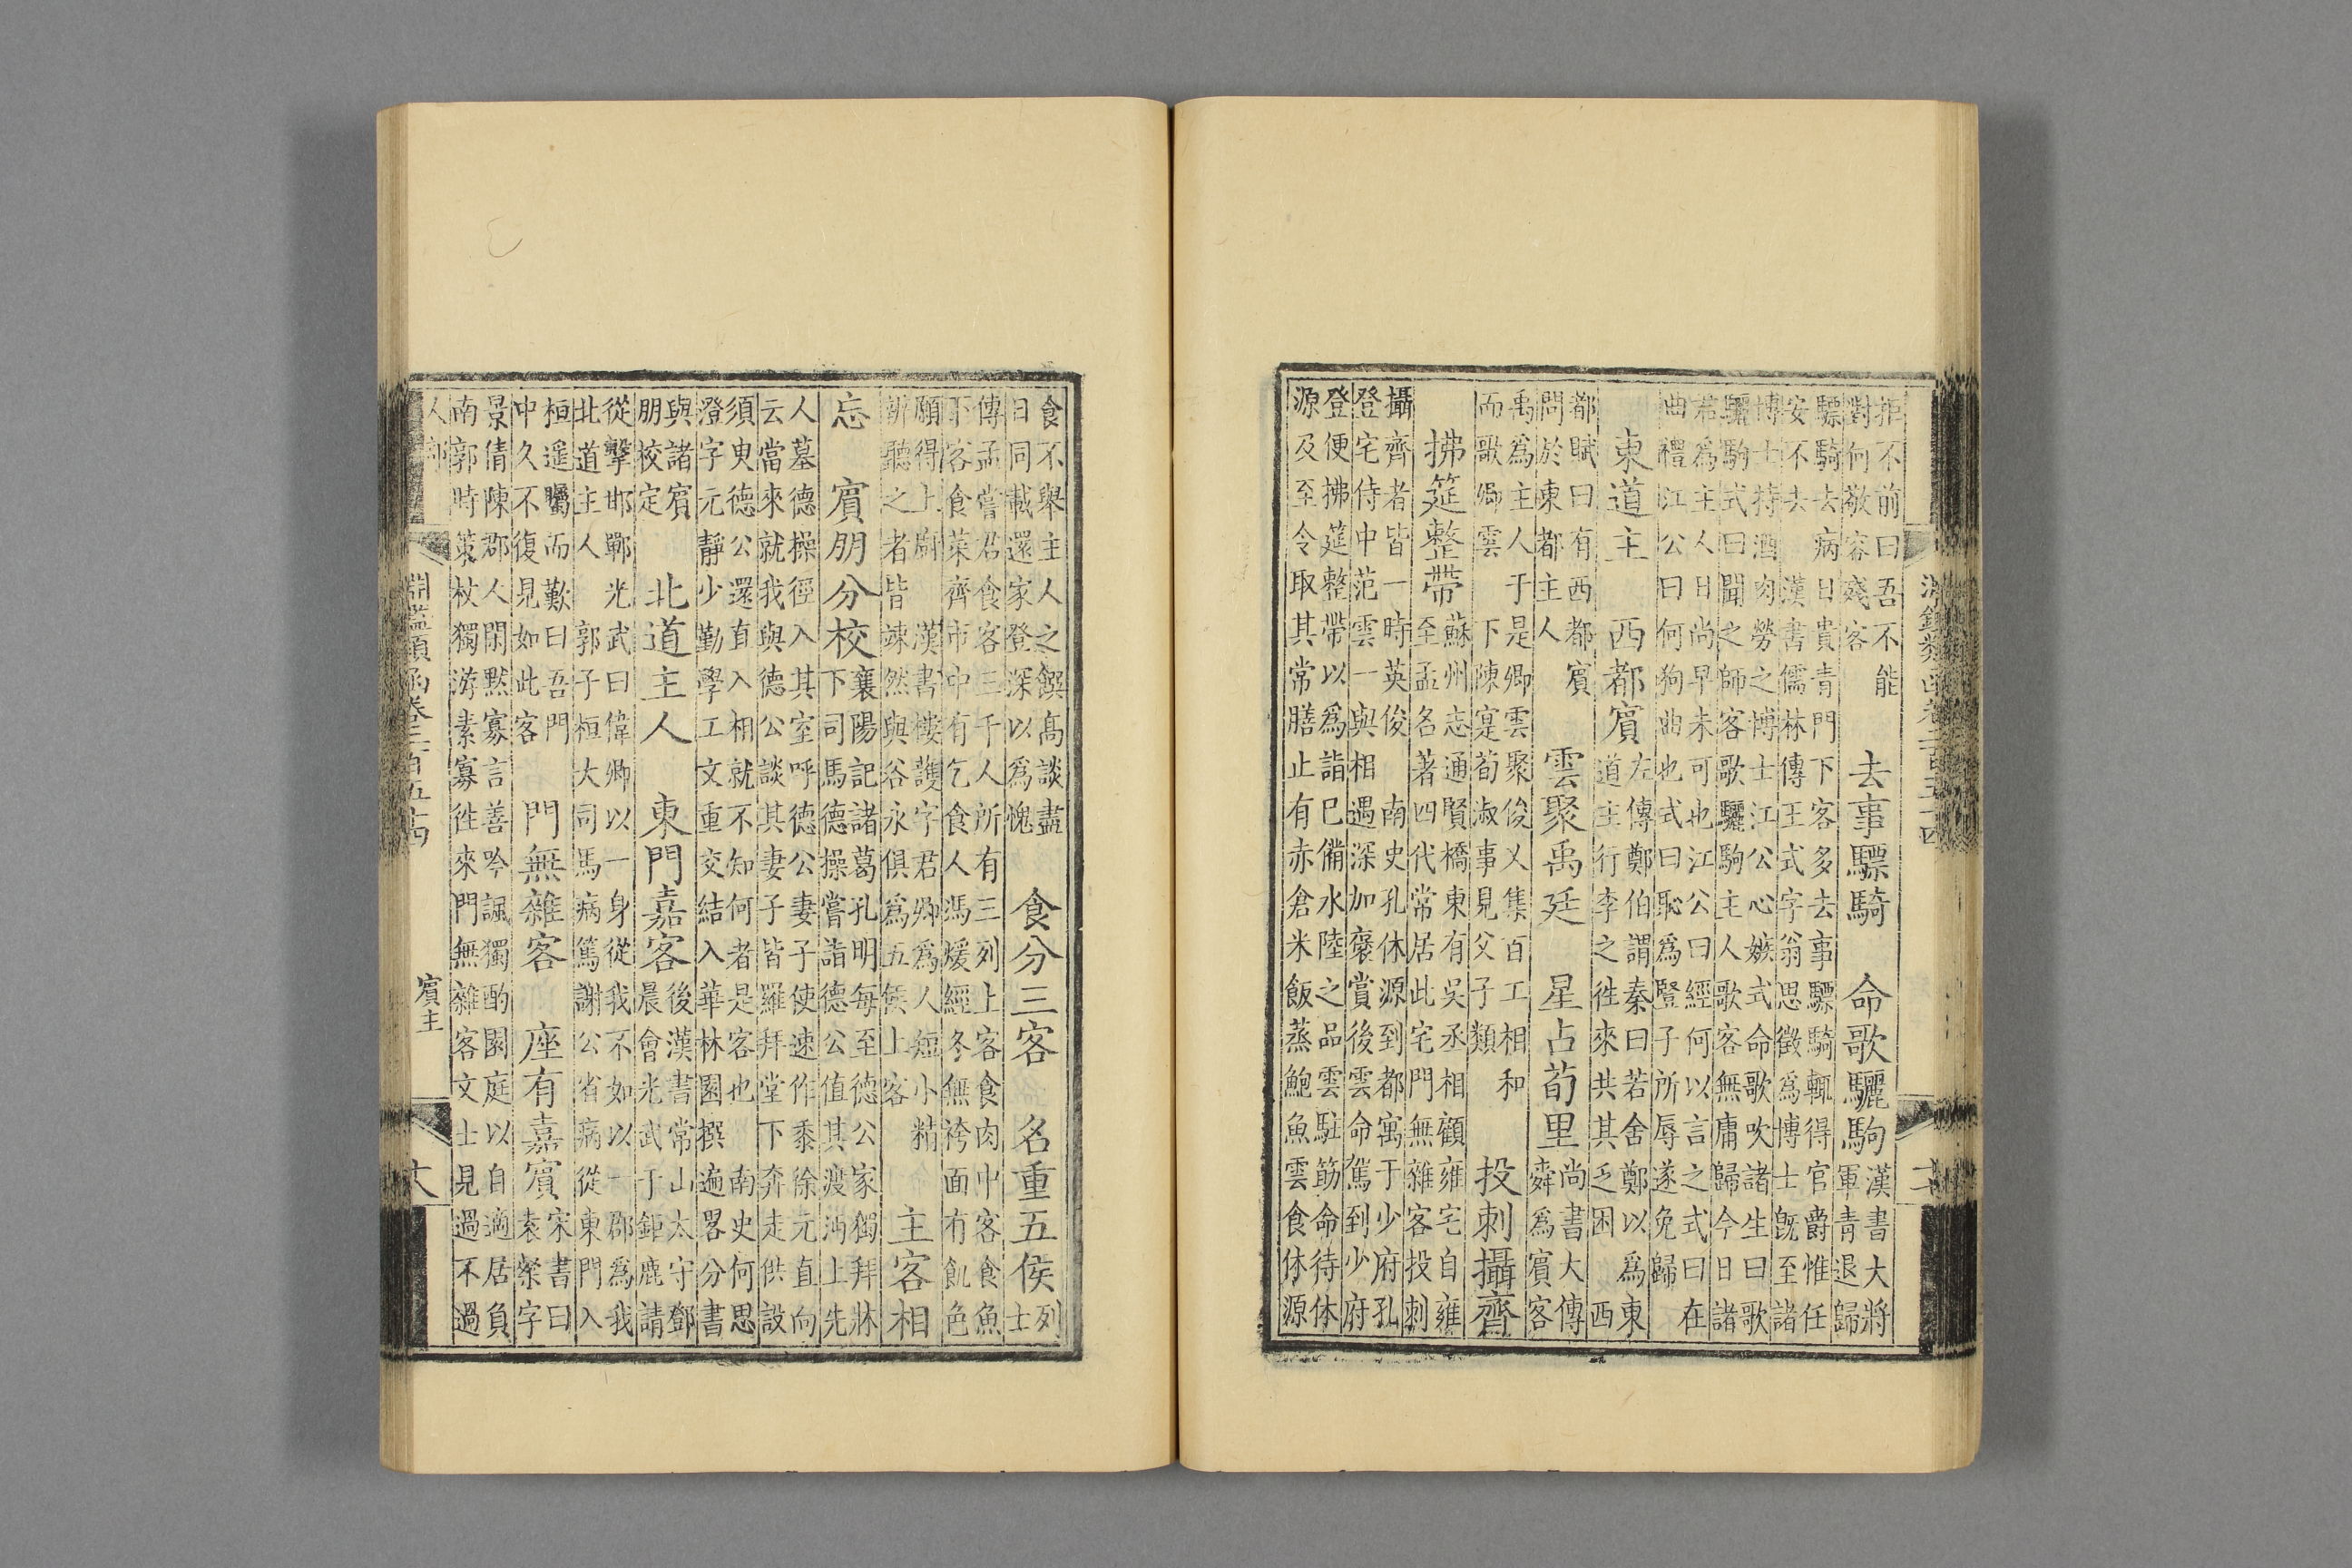 拒不前曰吾不能
對何敬容殘客
去事驃騎 命歌驪駒
漢書大將
軍青退歸
驃騎去病日貴青門下客多去事驃騎輒得官爵惟任
安不去 漢書儒林傳王式字翁思徵為博士旣至諸
博士持酒肉勞之博士江公心嫉式命歌吹諸生曰歌
驪駒式曰聞之師客歌驪駒主人歌客無庸歸今日諸
君為主人日尚早未可也江公曰經何以言之式曰在
曲禮江公曰何狗曲也式曰恥為豎子所辱遂免歸
東道主 西都賓
左傳鄭伯謂秦曰若舍鄭以為東
道主行李之徃來共其乏困 西
都賦曰有西都賓
問於東都主人
雲聚禹廷 星占荀里
尚書大傳
舜為賓客
禹為主人于是卿雲聚俊乂集百工相和
而歌卿雲 下陳寔荀淑事見父子類
投刺攝齊
拂筵整帶
蘇州志通賢橋東有吳丞相顧雍宅自雍
至孟名著四代常居此宅門無雜客投刺
攝齊者皆一時英俊 南史孔休源到都寓于少府孔
登宅侍中范雲一與相遇深加褒賞後雲命駕到少府
登便拂筵整帶以為詣巳備水陸之品雲駐筯命待休
源及至令取其常膳止有赤倉米飯蒸鮑魚雲食休源
食不舉主人之饌高談盡
日同載還家登深以為愧
食分三客 名重五侯
列
士
傳孟嘗君食客三千人所有三列上客食肉中客食魚
下客食菜齊市中有乞食人馮煖經冬無袴面有飢色
願得上廚 漢書樓護字君卿為人短小精
辨聽之者皆竦然與谷永俱為五侯上客
主客相
忘 賓朋分校
襄陽記諸葛孔明每至德公家獨拜牀
下司馬德操嘗詣德公值其渡沔上先
人墓德操徑入其室呼德公妻子使速作黍徐元直向
云當來就我與德公談其妻子皆羅拜堂下奔走供設
須臾德公還直入相就不知何者是客也 南史何思
澄字元靜少勤學工文重交結入華林園撰遍畧分書
與諸賓
朋校定
北道主人 東門嘉客
後漢書常山太守鄧
晨會光武于鉅鹿請
從擊邯鄲光武曰偉卿以一身從我不如以一郡為我
北道主人 郭子桓大同馬病篤謝公省病從東門入
桓遥矚而歎曰吾門
中久不復見如此客
門無雜客 座有嘉賓
宋書曰
袁粲字
景倩陳郡人閑默寡言善吟諷獨酌園庭以自適居負
南郭時策杖獨游素寡徃來門無雜客文士見過不過
賓主